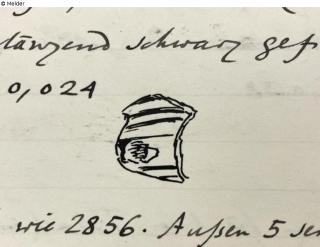 © Melder
tänzend schwarz gef
0,024
wie 2856. Außen 5 sen